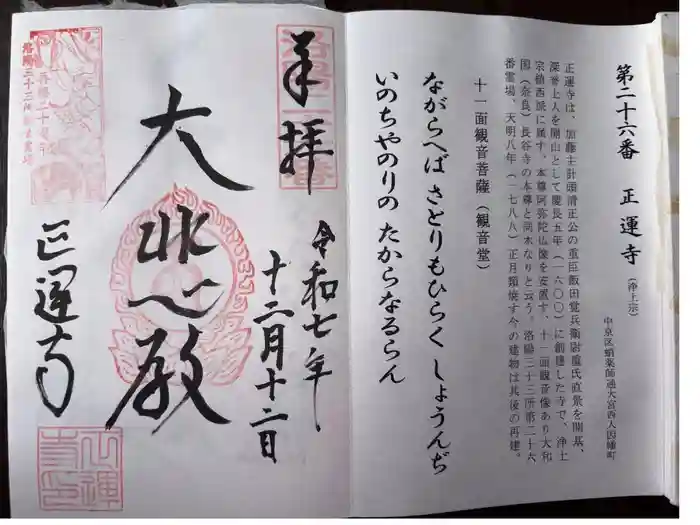 第二十六番 正運寺(浄土宗)
中京区蛸薬師通大宮西入因幡町
正運寺は、加藤主計頭清正公の重臣飯田覚兵衛尉直景を開基、
深誉上人を開山として慶長五年(一六〇〇)に創建した寺で、浄土
宗鎮西派に属す。本尊阿弥陀仏像を安置す。十一面観音像あり大和
国(奈良)長谷寺の本尊と同木なりと云う。洛陽三十三所第二十六
番霊場、天明八年(一七八八)正月類焼す今の建物は其後の再建。
十一面観音菩薩(観音堂)
ながらへば さとりもひらく しょうんぢ
いのちやのりの たからなるらん
奉拝
令和七年
十二月十二日
大悲殿
正運寺